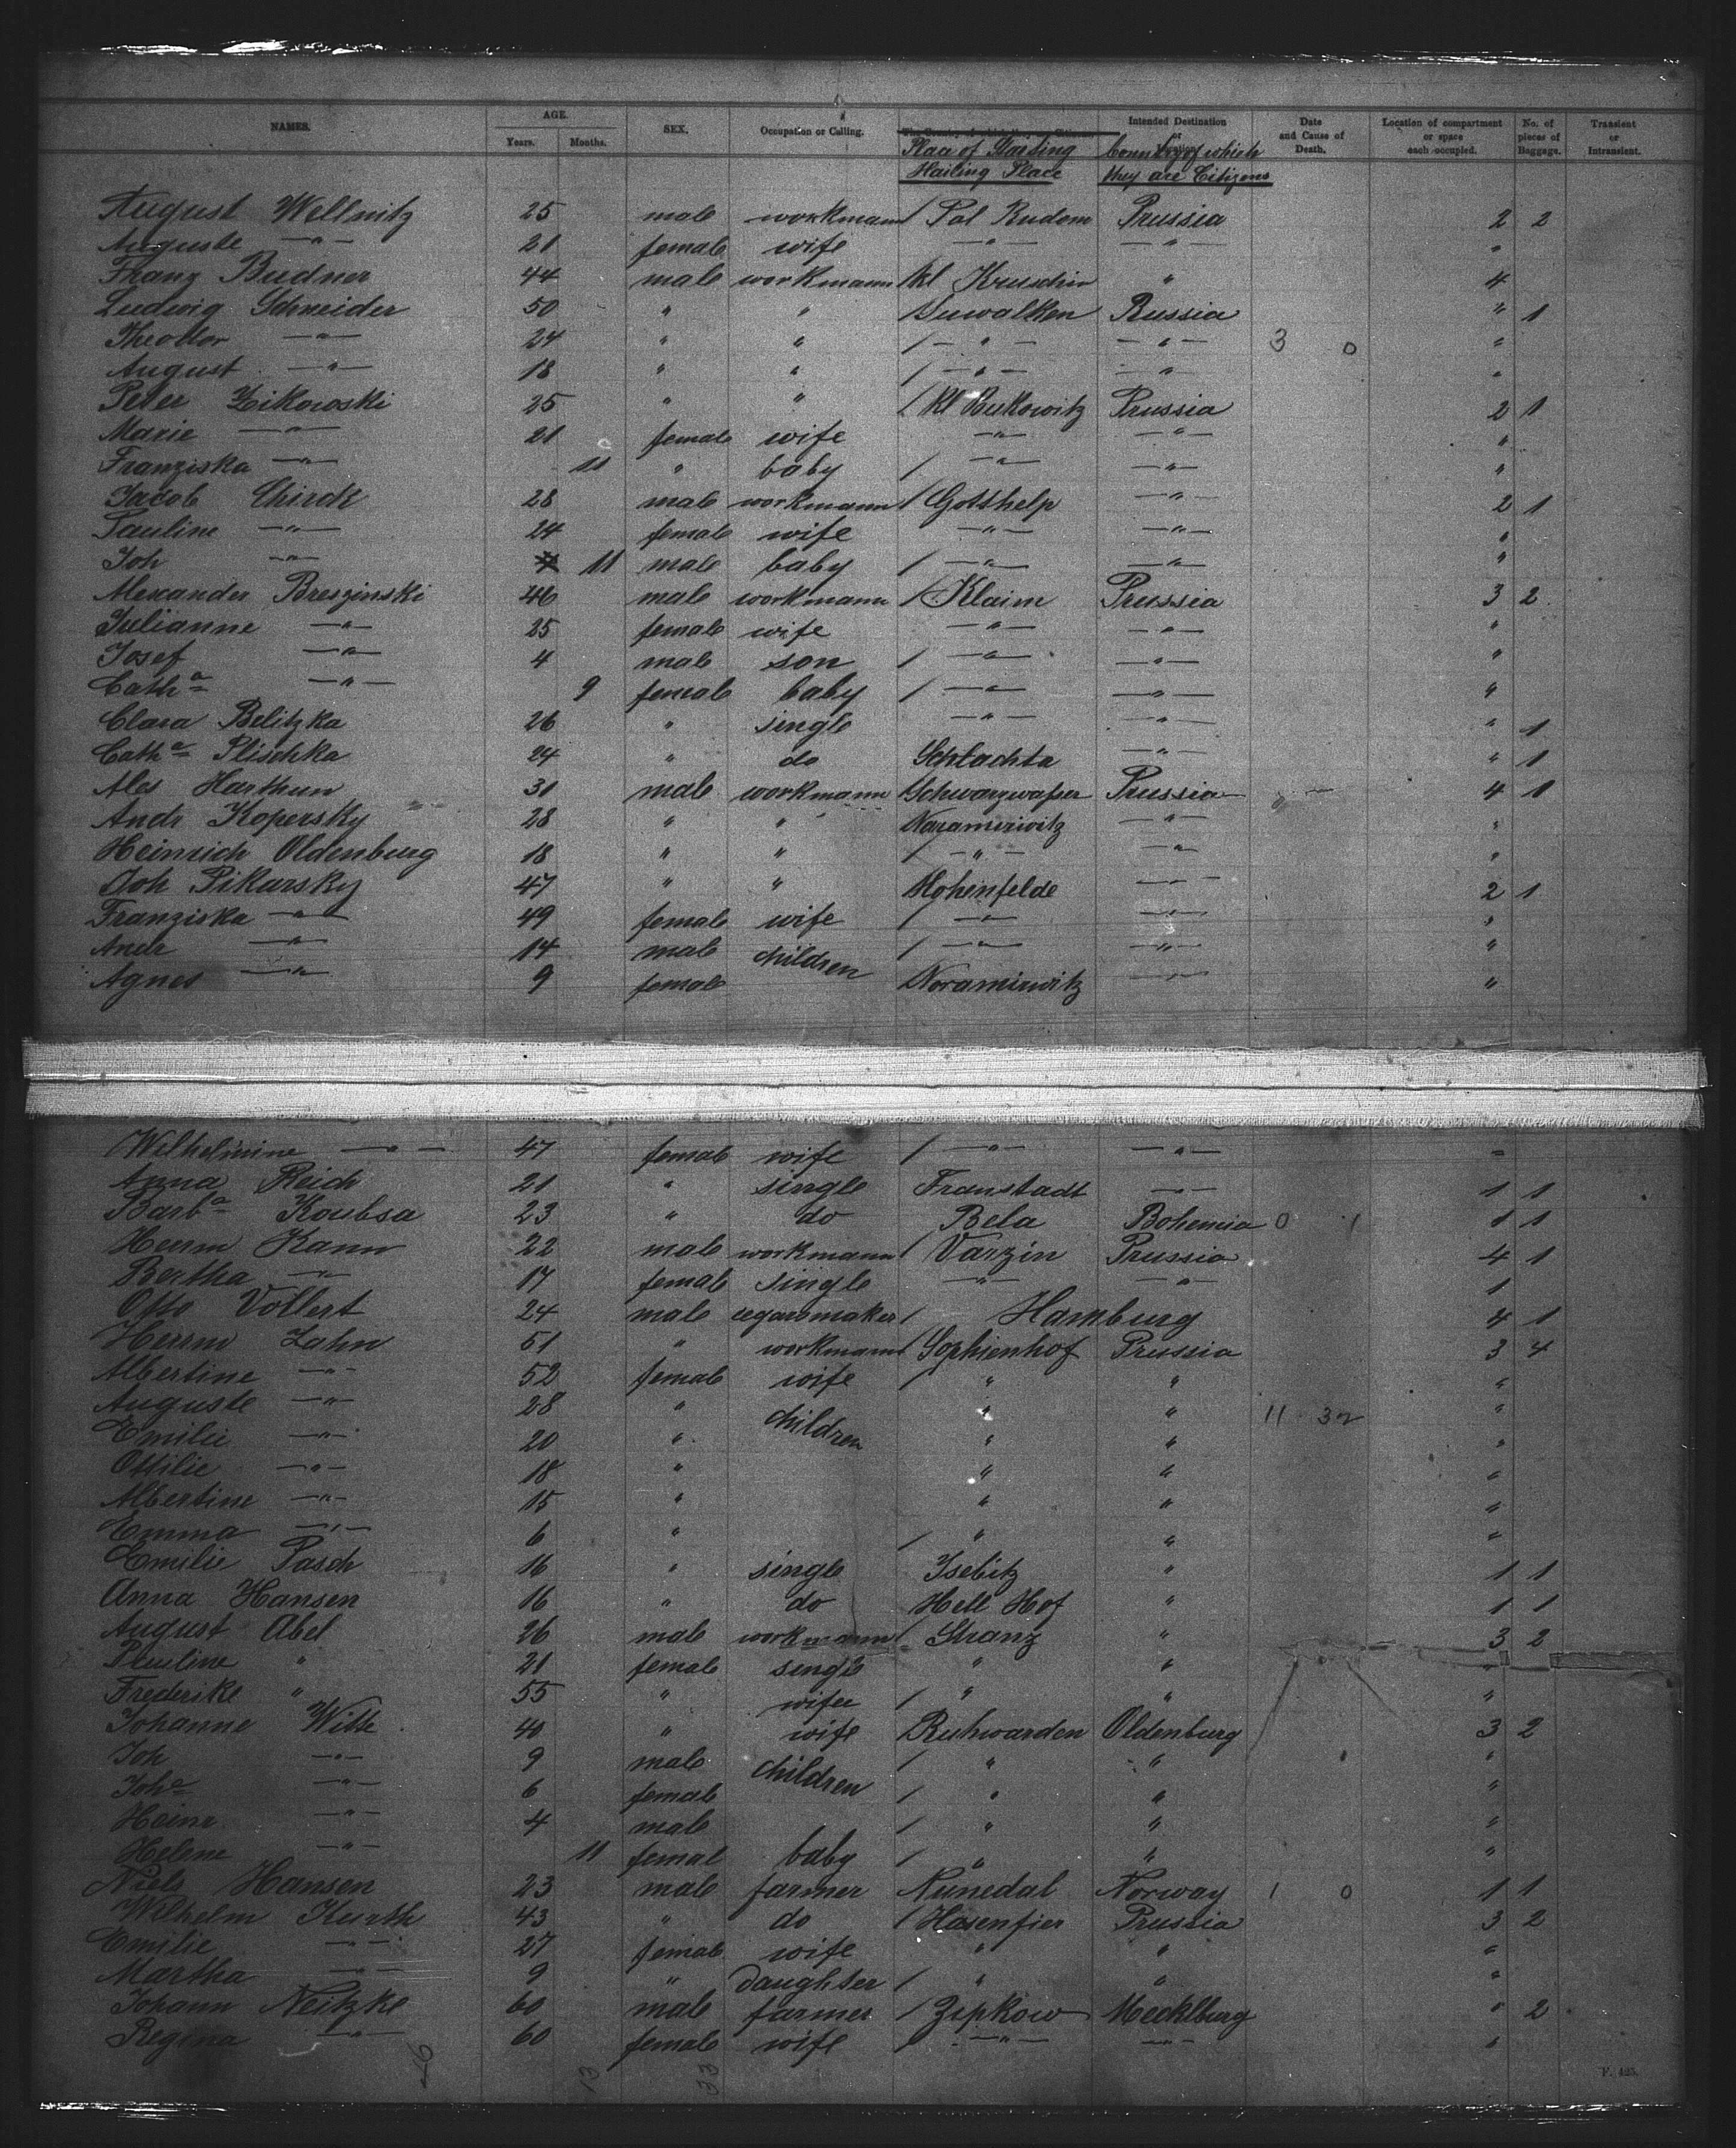 NAMES. AGE. Years. Months. SEX. Occupation or Calling. Intended Destination or Date and Cause of Death. Location of compartment or space each occupied. No. of pieces of Baggage. Transient or Intransient.
Place of Hailing Place Country of which they are Citizens
August Wellnitz 25 male workmann / Pol Rudom Prussia 2 2
Auguste —"— 21 female wife —"— —"— "
Franz Budner 44 male workmann kl Kruschin " 4
Ludwig Schneider 50 " " Suwalken Russia " 1
Theodor —"— 24 " " / —"— —"— 3 0 "
August —"— 18 " " / —"— —"— "
Peter Zikowski 25 " " / kl Bukowitz Prussia 2 1
Marie —"— 21 female wife —"— —"— "
Franziska —"— 11 " baby / —"— —"— "
Jacob Chirck 28 male workmann / Gotthelp —"— 2 1
Pauline —"— 24 female wife —"— —"— "
Joh —"— 11 male baby / —"— —"— "
Alexander Breszinski 46 male workmann / Klaim Prussia 3 2
Julianne —"— 25 female wife —"— —"— "
Josef —"— 4 male son / —"— —"— "
Catha —"— 9 female baby / —"— —"— "
Clara Belitzka 26 " single —"— —"— " 1
Catha Plischka 24 " do Schlachta —"— " 1
Alex Harthun 31 male workmann Schwarzwasser Prussia 4 1
Andr Kopersky 28 " " —"— "
Heinrich Oldenburg 18 " " / —"— —"— "
Joh Pikarsky 47 " " Hohenfelde —"— 2 1
Franziska —"— 49 female wife / —"— —"— "
Andr —"— 14 male children / —"— —"— "
Agnes —"— 9 female —"— "
Wilhelmine —"— 47 female wife / —"— —"— "
Anna Reich 21 " single Franstadt —"— 1 1
Barba Koubsa 23 " do Bela Bohemia 0 1 1 1
Herrm Kann 22 male workmann / Varzin Prussia 4 1
Bertha —"— 17 female single —"— —"— 1
Otto Vollert 24 male cegarsmaker / Hamburg 4 1
Herrm Zahn 51 " workmann / Sophienhof Prussia 3 4
Albertine —"— 52 female wife / " " "
Auguste —"— 28 " children " " 11 32 "
Emilie —"— 20 " " " "
Ottilie —"— 18 " " " "
Albertine —"— 15 " " " "
Emma —"— 6 " / " " "
Emilie Pasch 16 " single Iselitz " 1 1
Anna Hansen 16 " do Hell Hof " 1 1
August Abel 26 male workmann / Stranz " 3 2
Pauline " 21 female single " " "
Frederike " 55 " wifer / " " "
Johanne Witte 40 " wife Ruhwarden Oldenburg 3 2
Joh —"— 9 male children / " " "
Joha —"— 6 female / " " "
Heinr —"— 4 male / " " "
Helene —"— 11 femal baby / " " "
Niels Hansen 23 male farmer Numedal Norway 1 0 1 1
Wilhelm Kurth 43 " do / Hasenfier Prussia 3 2
Emilie —"— 27 female wife " " "
Martha —"— 9 " Daughter / " " "
Johann Neitzke 60 male farmer / Zipkow Mecklburg " 2
Regina —"— 60 female wife / —"— —"— "
13 33
F. 425.